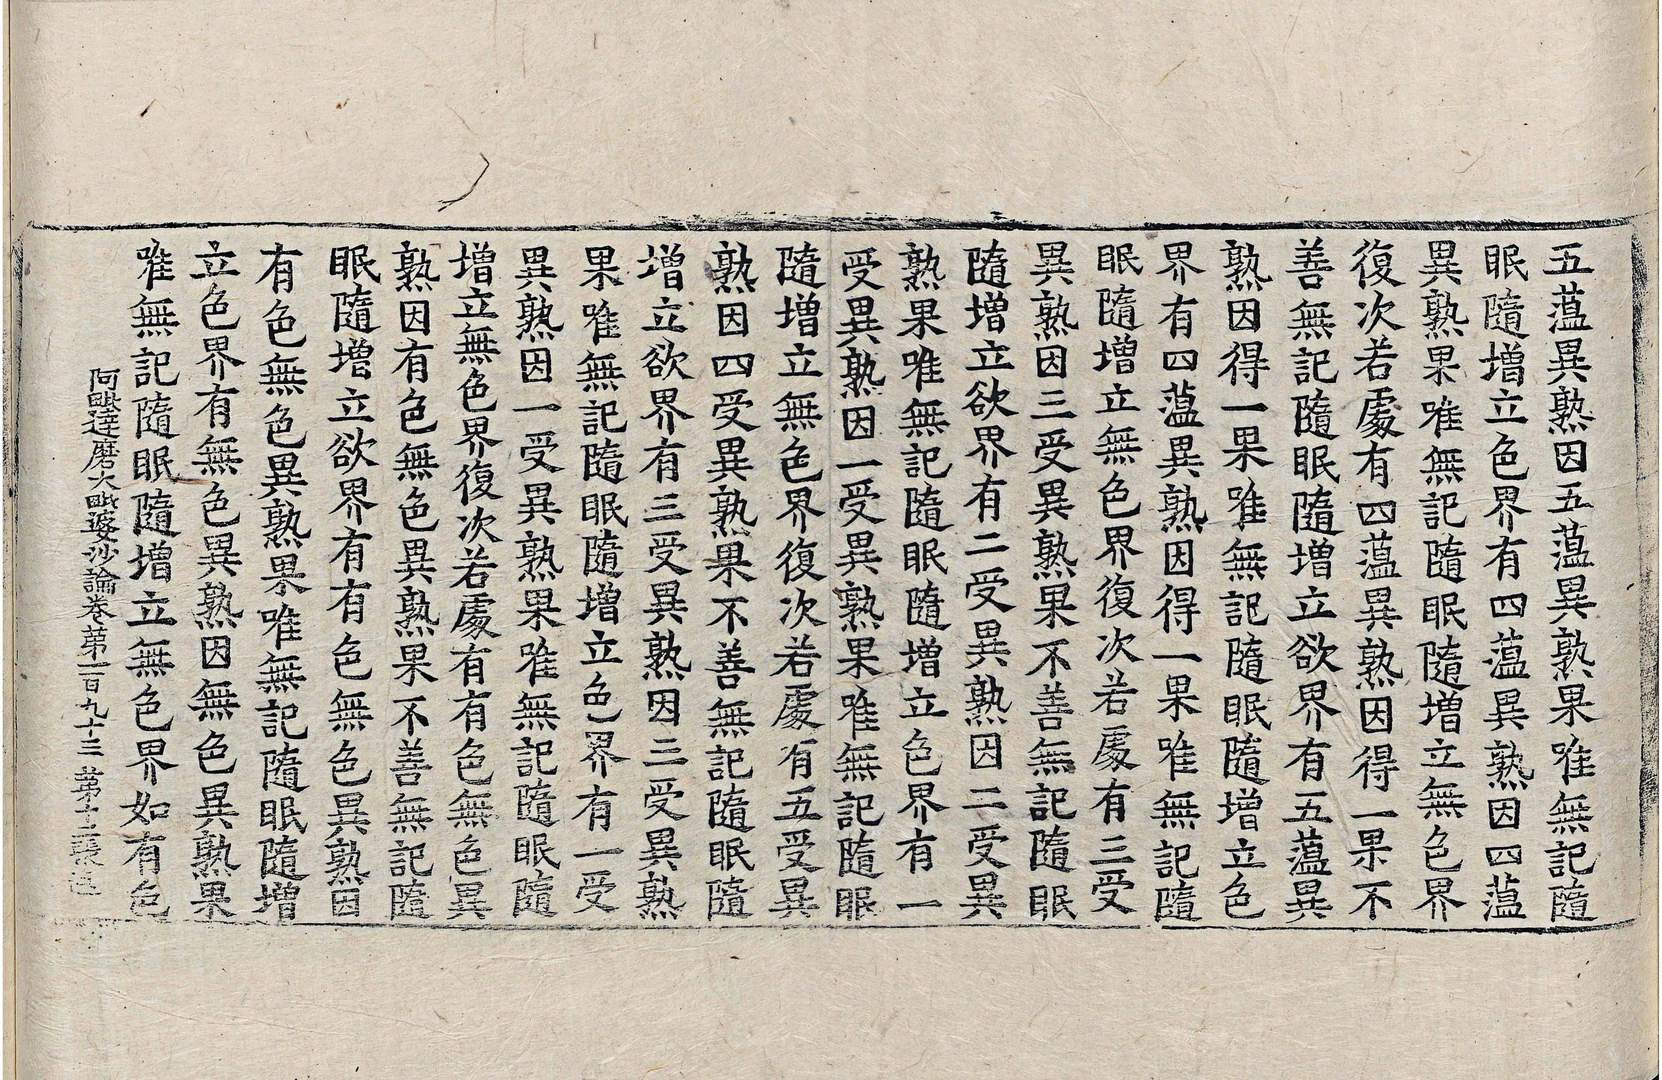 五蕰異熟因五蕰異熟果唯無記隨
眠隨增立色界有四蕰異熟因四蕰
異熟果唯無記隨眠隨增立無色界
復次若處有四蕰異熟因得一果不
善無記隨眠隨增立欲界有五蕰異
熟因得一果唯無記隨眠隨增立色
界有四蕰異熟因得一果唯無記隨
眠隨增立無色界復次若處有三受
異熟因三受異熟果不善無記隨眠
隨增立欲界有二受異熟因二受異
熟果唯無記隨眠隨增立色界有一
受異熟因一受異熟果唯無記隨眠
隨增立無色界復次若處有五受異
熟因四受異熟果不善無記隨眠隨
增立欲界有三受異熟因三受異熟
果唯無記隨眠隨增立色界有一受
異熟因一受異熟果唯無記隨眠隨
增立無色界復次若處有有色無色異
熟因有色無色異熟果不善無記隨
眠隨增立欲界有有色無色異熟因
有色無色異熟果唯無記隨眠隨增
立色界有無色異熟因無色異熟果
唯無記隨眠隨增立無色界如有色
阿毗達磨大毗婆沙論卷第一百九十三 第十二張